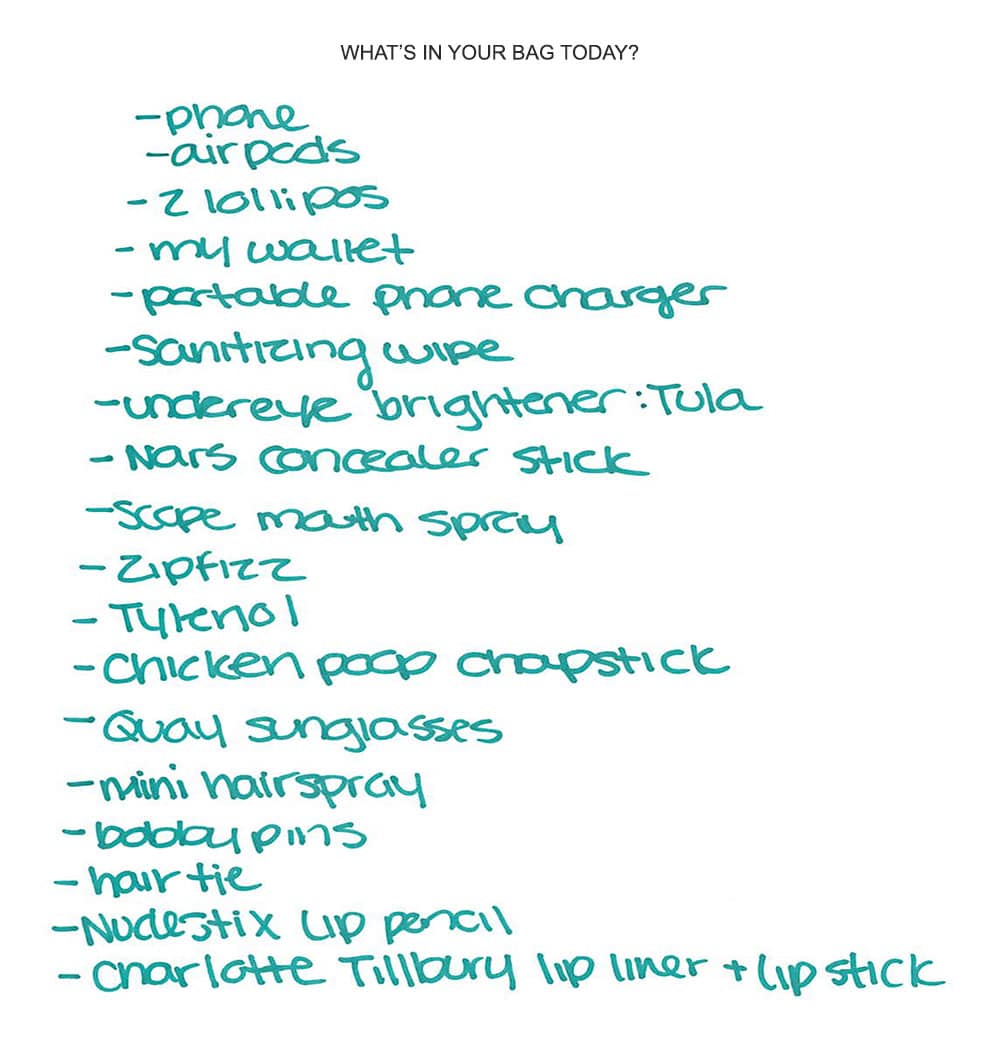 WHAT'S IN YOUR BAG TODAY?
-phone
-airpods
-2 lollipops
-my wallet
-portable phone charger
-sanitizing wipe
-undereye brightener:Tula
-Nars concealer stick
-Scope mouth spray
-Zipfizz
-Tylenol
-Chicken poop chapstick
-Quay sunglasses
-mini hairspray
-bobby pins
-hair tie
-Nudestix lip pencil
-Charlotte Tillbury lip liner + lipstick